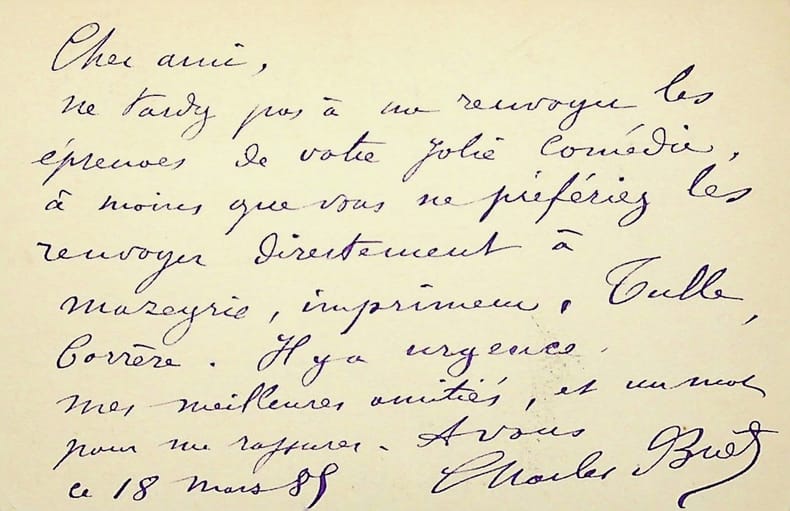 Cher ami,
ne tardez pas à me renvoyer les
épreuves de votre jolie comédie,
à moins que vous ne préfériez les
renvoyer directement à
Mazeyrie, imprimeur, Tulle,
Corrère. Il y a urgence.
mes meilleures amitiés, et un mot
pour me rassurer. A vous
ce 18 mars 85 Charles Buet